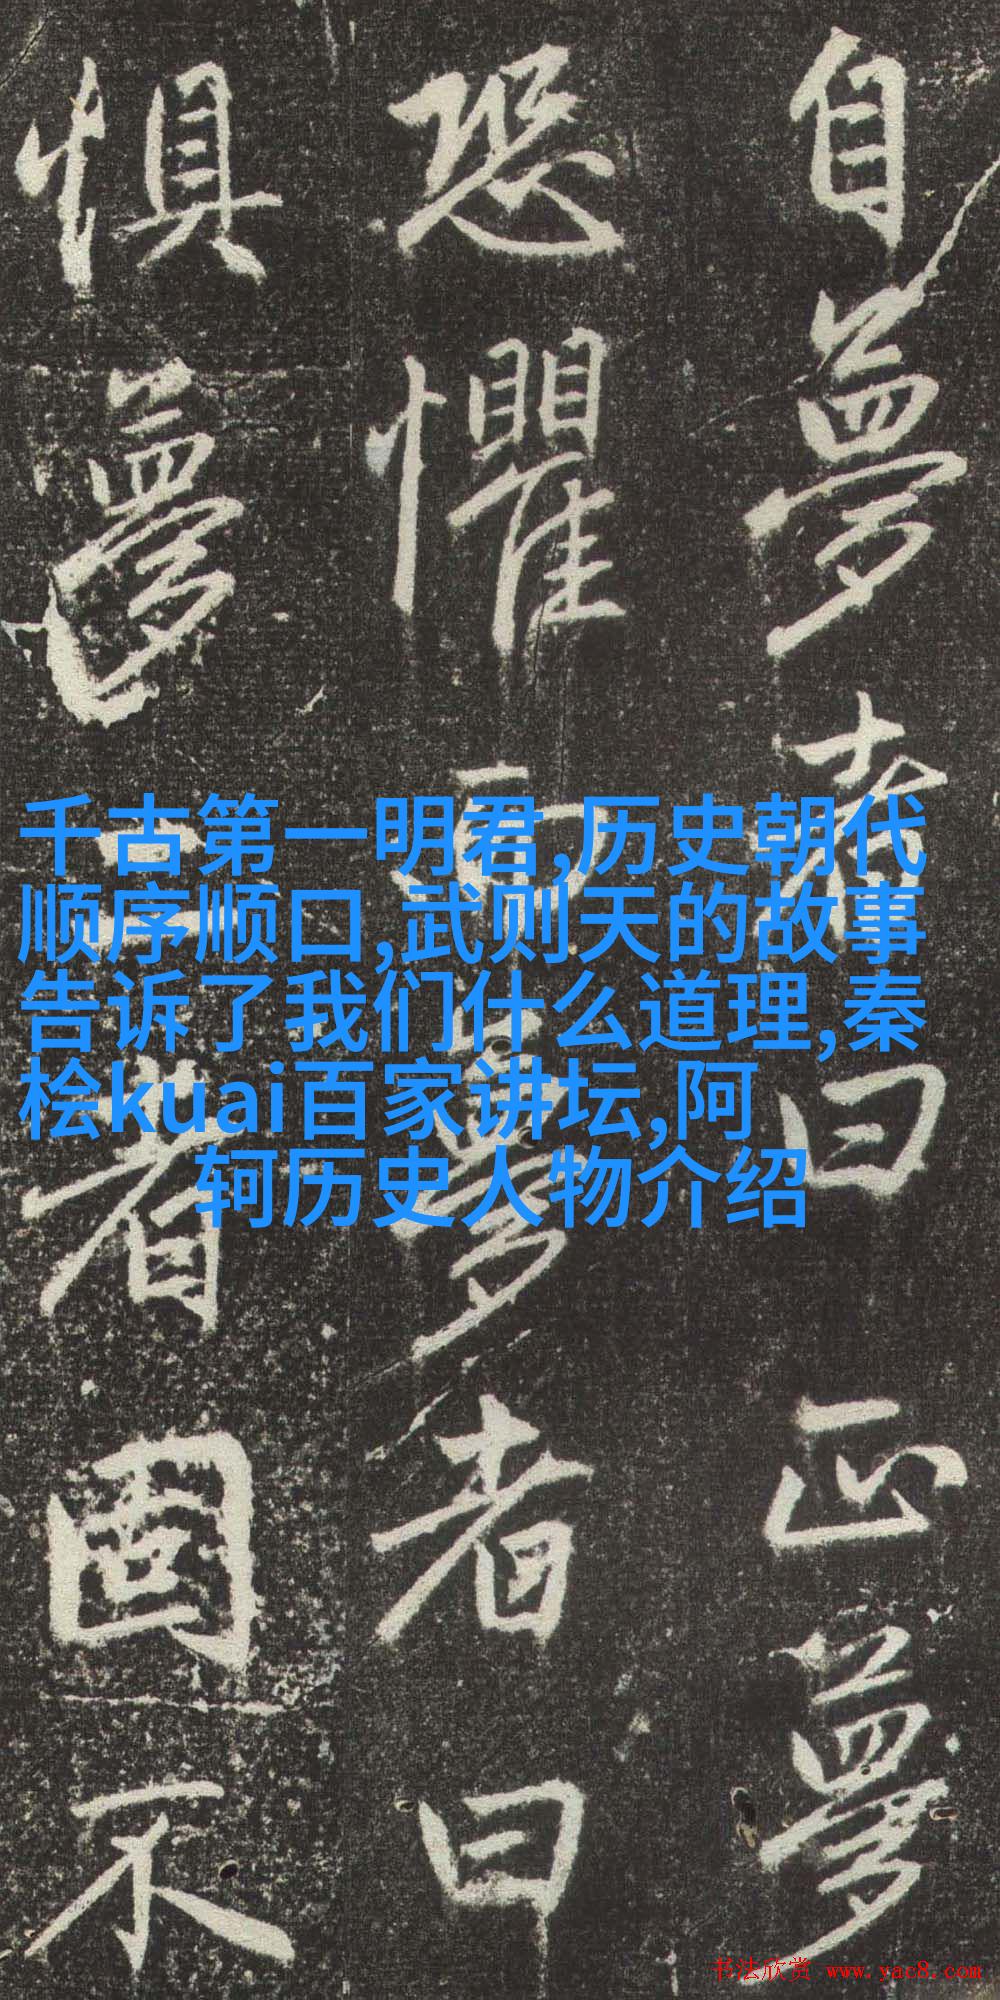 自夢者曰正夢
恐懼而夢者曰
惧夢二者固不
千古第一明君,历史朝代
顺序顺口,武则天的故事
告诉了我们什么道理,秦
桧kuai百家讲坛,阿
轲历史人物介绍
书法欣赏 www.yac8.com